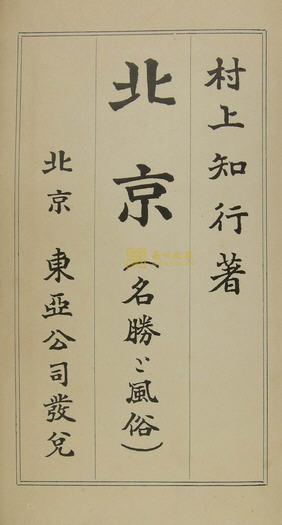 村上知行著
北京(名勝と風俗)
北京 東亞公司發兌